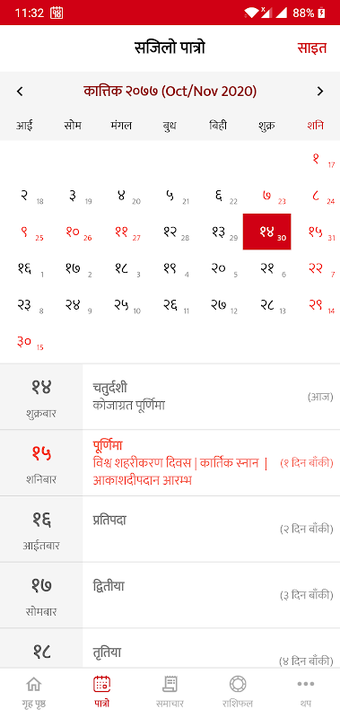 11:32 88%
सजिलो पात्रो साइत
कात्तिक २०७७ (Oct/Nov 2020)
आई सोम मंगल बुध बिही शुक्र शनि
१ 17
२ 18 ३ 19 ४ 20 ५ 21 ६ 22 ७ 23 ८ 24
९ 25 १० 26 ११ 27 १२ 28 १३ 29 १४ 30 १५ 31
१६ 1 १७ 2 १८ 3 १९ 4 २० 5 २१ 6 २२ 7
२३ 8 २४ 9 २५ 10 २६ 11 २७ 12 २८ 13 २९ 14
३० 15
१४ चतुर्दशी
कोजाग्रत पूर्णिमा (आज)
शुक्रबार
१५ पूर्णिमा
विश्व शहरीकरण दिवस | कार्तिक स्नान | (१ दिन बाँकी)
शनिबार आकाशदीपदान आरम्भ
१६ प्रतिपदा
(२ दिन बाँकी)
आईतबार
१७ द्वितीया
(३ दिन बाँकी)
सोमबार
१८ तृतिया
(४ दिन बाँकी)
गृह पृष्ठ पात्रो समाचार राशिफल थप